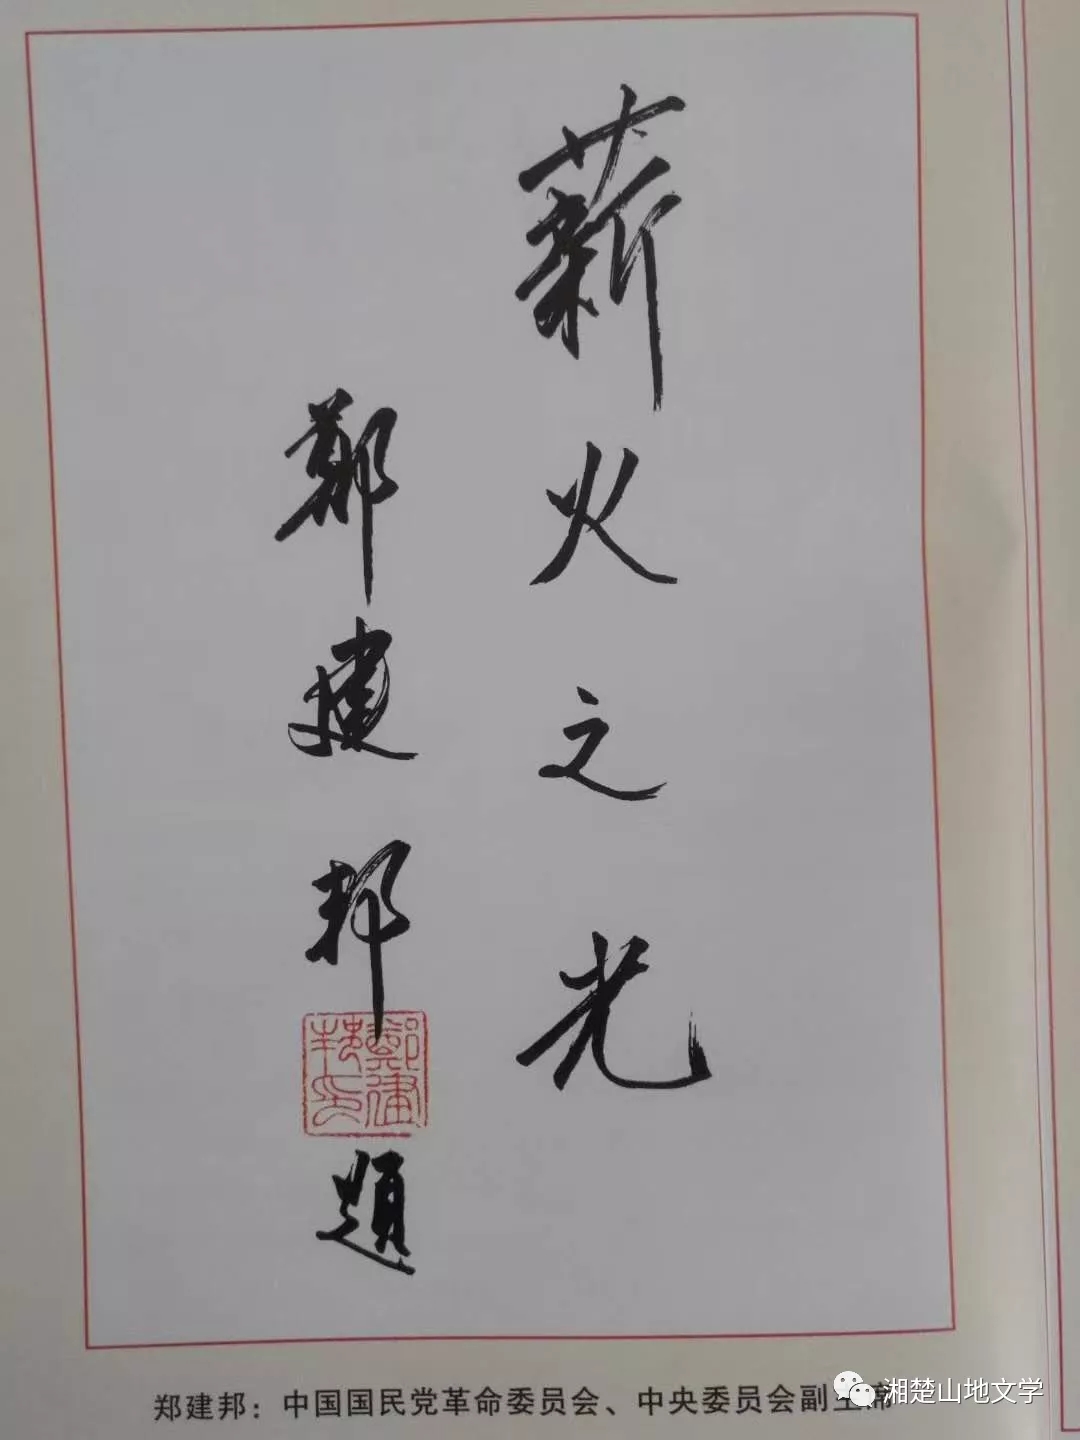 薪火之光
鄭建邦題
郑建邦：中国国民党革命委员会、中央委员会副主席
湘楚山地文学